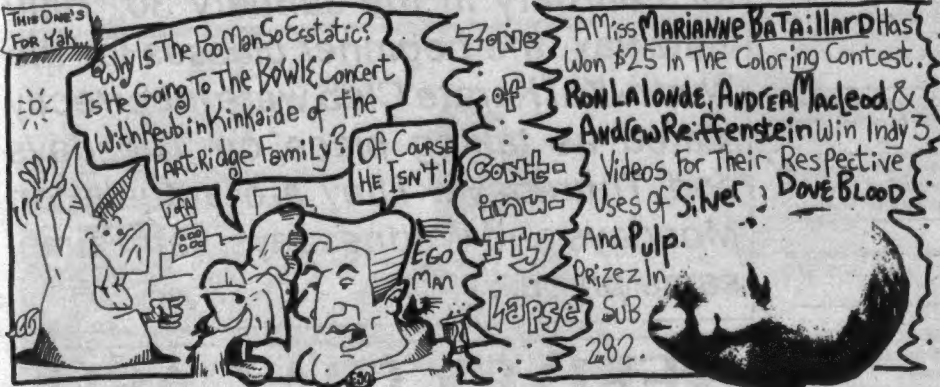 THIS ONE'S
FOR YAK...
Why Is The PooMan So Ecstatic?
Is He Going To The BOWIE Concert
With Reubin Kinkaide of the
PartRidge FamiLy?
OF COURSE
HE ISN'T!
UofA
EGO
MAN
ZONE
of
CONT-
inu-
ITY
Lapse
A Miss MARIANNE BATAILLARD Has
Won $25 In The Coloring Contest.
RON LALONDE, ANDREA MACLEOD, &
ANDREW REIFFENSTEIN Win Indy 3
Videos For Their Respective
Uses Of Silver, DOVE BLOOD
And Pulp.
PRIZEZ In
SUB
282.